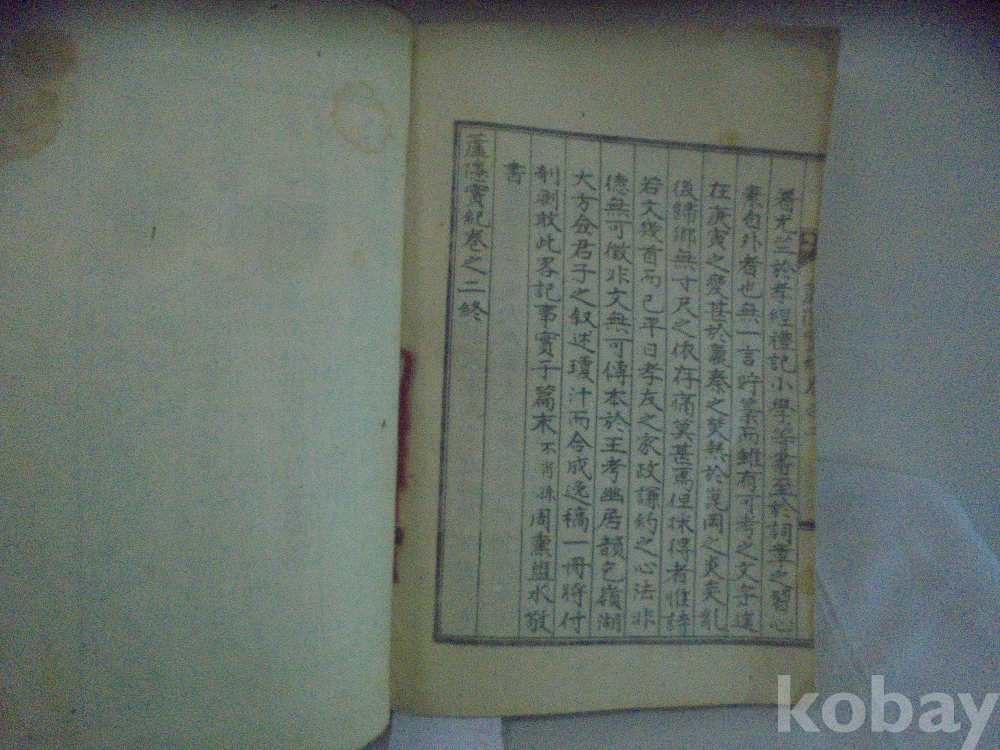 着尤竺於孝經禮記小學等書至於詞章之習心
素向外者也無一言貯業而雖有可考之文字逢
在庚寅之變甚於嬴秦之焚熱於崑岡之炎矣亂
後歸鄉無寸尺之依存痛莫甚焉但採得者惟詩
若文幾首而已平日孝友之家政謙約之心法非
德無可徵非文無可傳本於王考幽居韻乞嶺湖
大方僉君子之叙述瓊汁而合成逸稿一冊將付
剞劂敢此畧記事實于篇末不肖孫周熏盥水敬
書
蘆隱實紀卷之二終
kobay